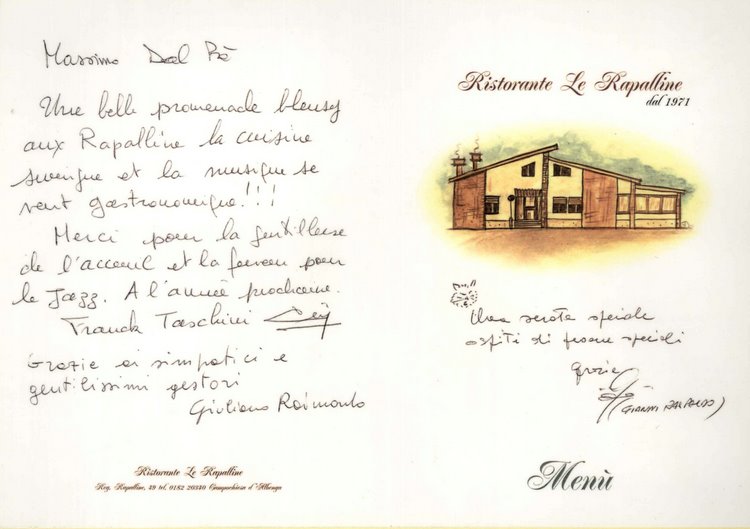 Massimo Dal Bò
Une belle promenade bluesy
aux Rapalline la cuisine
swingue et la musique se
veut gastronomique!!!
Merci pour la gentillesse
de l'acceuil et la ferveur pour
le Jazz. A l'année prochaine.
Franck Taschini
Grazie ai simpatici e
gentilissimi gestori
Giuliano Raimondo
Ristorante Le Rapalline
Reg. Rapalline, 49 tel. 0182 20340 Campochiesa d'Albenga
Ristorante Le Rapalline
dal 1971
Una serata speciale
ospiti di persone speciali
Grazie
(GIANNI DAL POZZO)
Menù